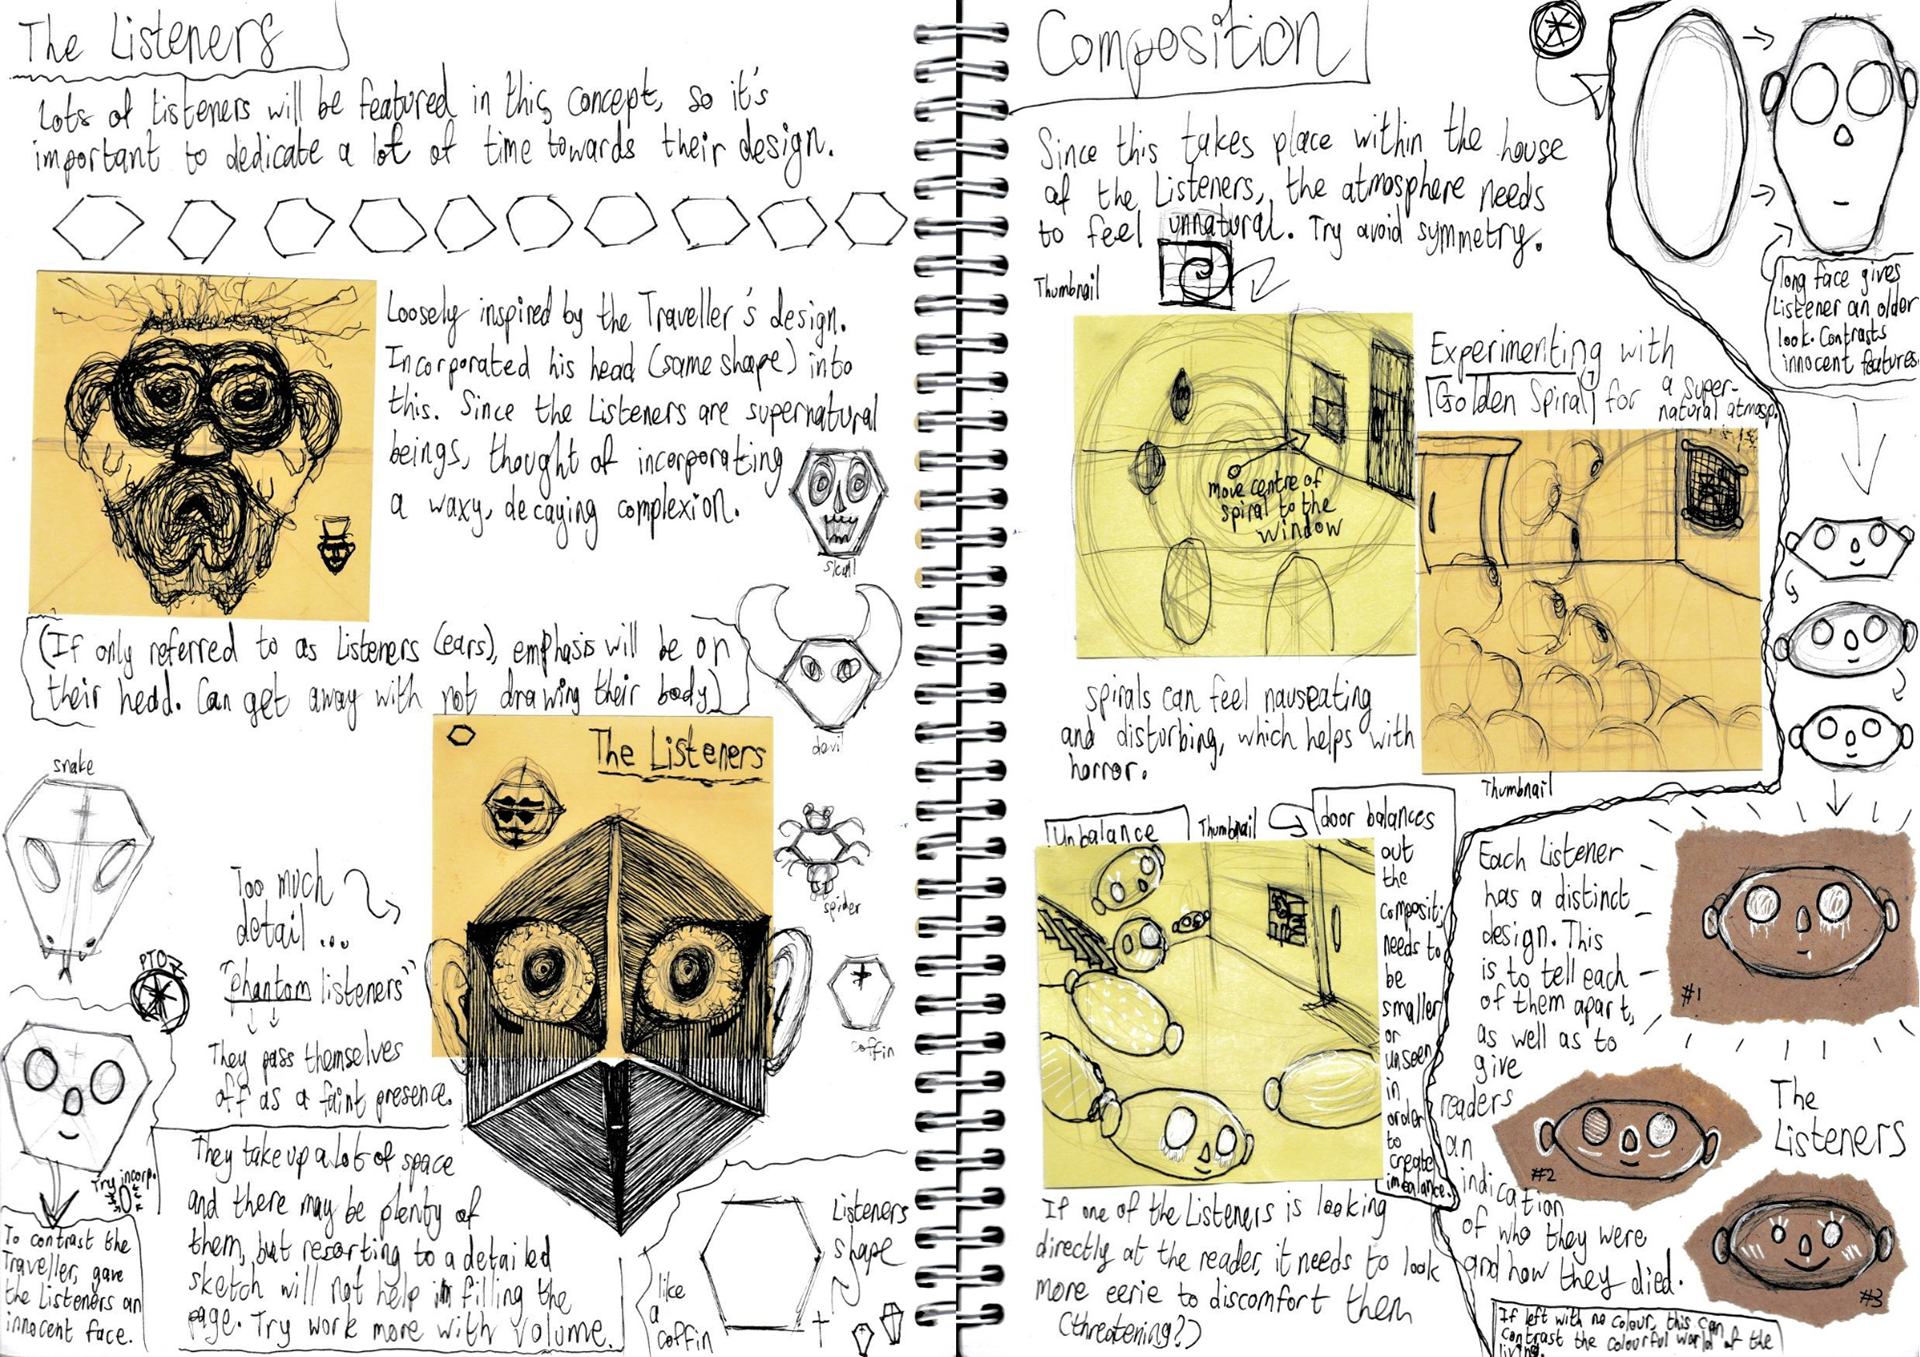 The Listeners
Lots of Listeners will be featured in this concept, so it's
important to dedicate a lot of time towards their design.
Loosely inspired by the Traveller's design.
Incorporated his head (same shape) into
this. Since the Listeners are supernatural
beings, thought of incorporating
a waxy, decaying complexion.
skull
(If only referred to as Listeners (ears), emphasis will be on
their head. Can get away with not drawing their body)
devil
snake
The Listeners
spider
coffin
Too much
detail ...
"phantom listeners"
They pass themselves
off as a faint presence.
PTO
They take up a lot of space
and there may be plenty of
them, but resorting to a detailed
sketch will not help in filling the
page. Try work more with volume.
Try incorp.
To contrast the
Traveller, gave
the Listeners an
innocent face.
Listeners
shape
like
a
coffin
Composition
Since this takes place within the house
of the Listeners, the atmosphere needs
to feel unnatural. Try avoid symmetry.
Thumbnail
move centre of
spiral to the
window
Experimenting with
'Golden Spiral' for a super-
natural atmosp.
long face gives
Listener an older
look. Contrasts
innocent features
spirals can feel nauseating
and disturbing, which helps with
horror.
Thumbnail
Unbalance
Thumbnail
door balances
out
the
composit;
needs to
be
smaller
or
unseen
in
order
to
create
imbalance.
If one of the Listeners is looking
directly at the reader, it needs to look
more eerie to discomfort them
(threatening?)
Each Listener
has a distinct
design. This
is to tell each
of them apart,
as well as to
give
readers
an
indication
of who they were
and how they died.
#1
#2
The
Listeners
#3
If left with no colour, this can
contrast the colourful world of the
living.